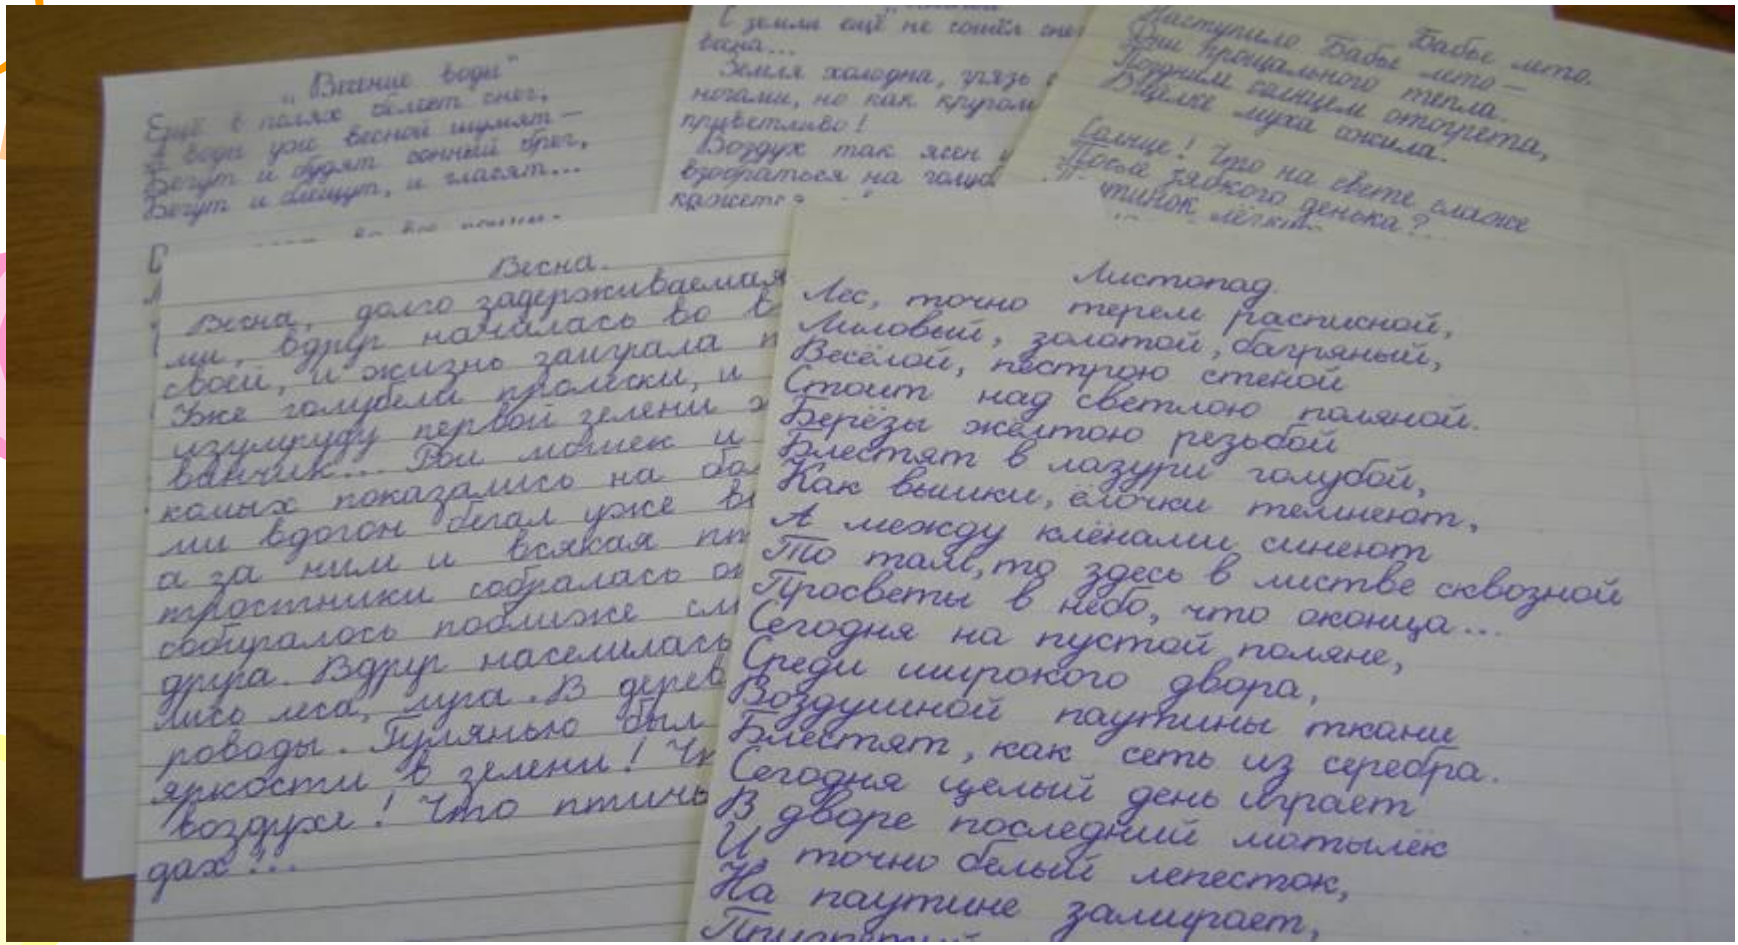 „Весение воды"
Ещё в полях белеет снег,
А воды уже весной шумят —
Бегут и будят сонный брег,
Бегут и блещут, и гласят...
С земли ещё не сошёл снег
Земля холодна, грязь
ногами, но как кругом
приветливо!
Воздух так ясен
взобраться на голуб
кажется
Бабье лето.
Наступило Бабье лето —
Дни прощального тепла.
Поздним солнцем отогрета,
В щёлке муха ожила.
Солнце! Что на свете слаже
После зябкого денька?..
Весна.
Весна, долго задерживаемая
ми, вдруг началась во в
своей, и жизнь заиграла п
Уже голубели пролески, и
изумруду первой зелени ж
ванчик... Рои мошек и
комых показались на бол
ми вдогон бегал уже в
а за ним и всякая пт
тростники собралась
собиралось поближе
друга. Вдруг населилась
лись леса, луга. В дерев
роводы. Гулянью был
яркости в зелени! Чт
воздухе! Что птичь
дах!..
Листопад.
Лес, точно терем расписной,
Лиловый, золотой, багряный,
Весёлой, пестрою стеной
Стоит над светлою поляной.
Берёзы жёлтою резьбой
Блестят в лазури голубой,
Как вышки, ёлочки темнеют,
А между клёнами синеют
То там, то здесь в листве сквозной
Просветы в небо, что оконца...
Сегодня на пустой поляне,
Среди широкого двора,
Воздушной паутины ткани
Блестят, как сеть из серебра.
Сегодня целый день играет
В дворе последний мотылёк
И точно белый лепесток,
На паутине замирает,